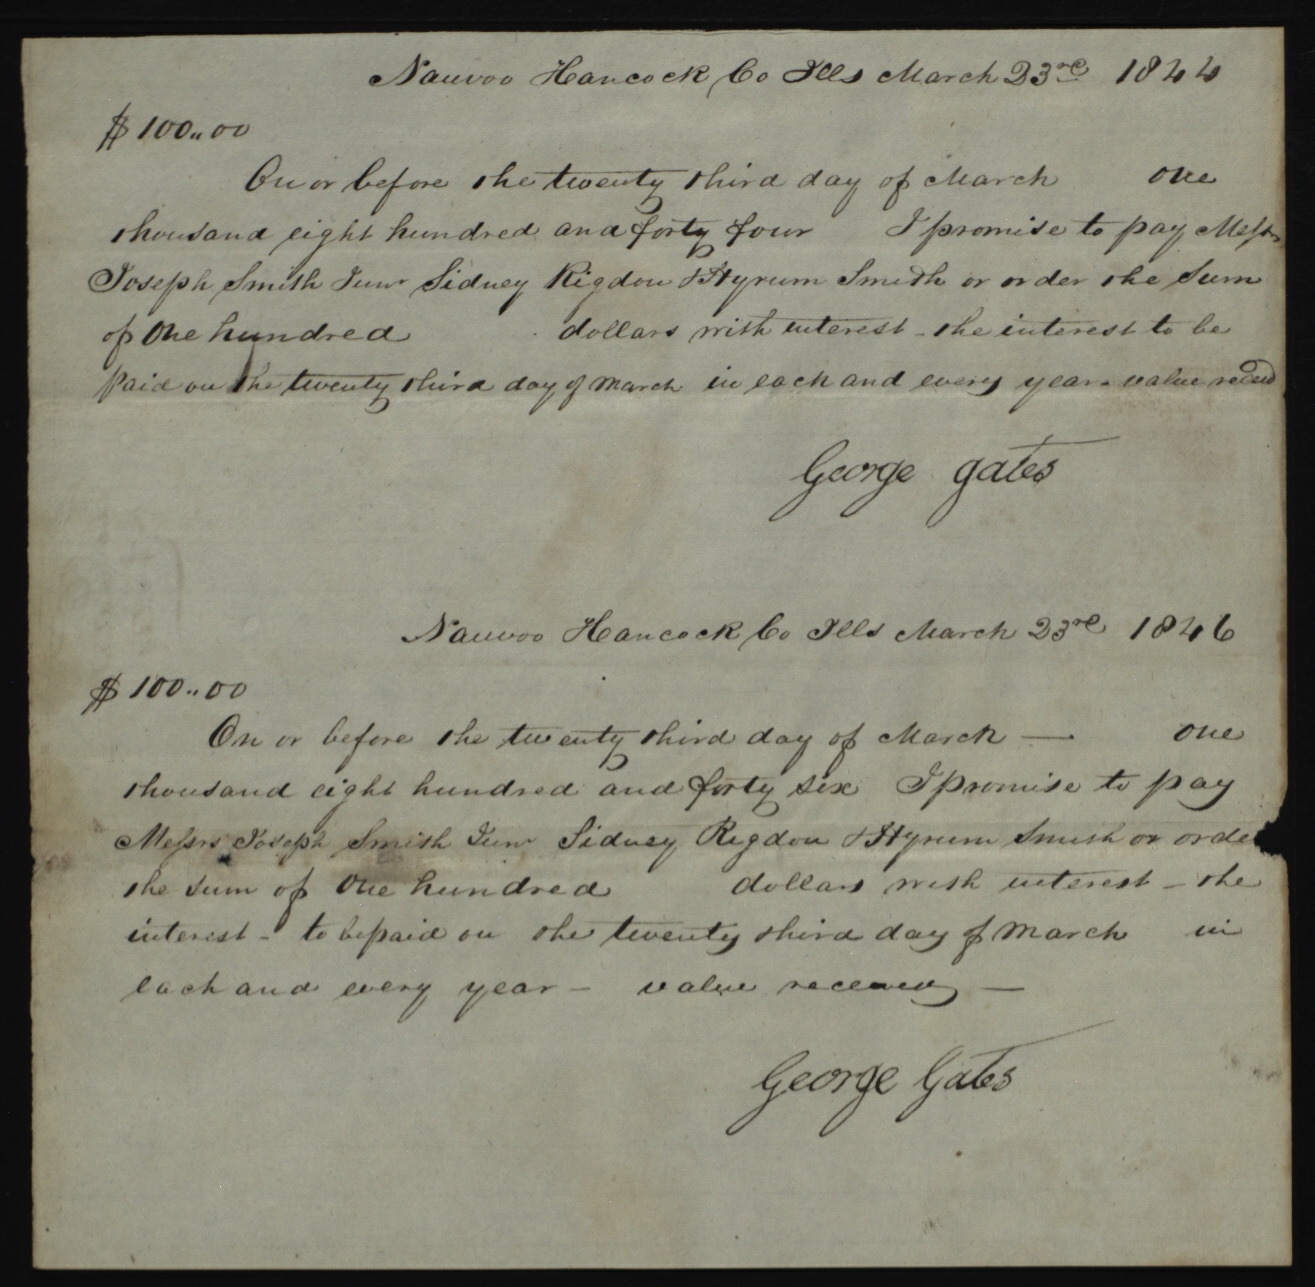 Nauvoo Hancock Co Ills March 23rd 1844
$100..00
On or before the twenty third day of March one
thousand eight hundred and forty four I promise to pay Messrs
Joseph Smith Junr Sidney Rigdon & Hyrum Smith or order the Sum
of One hundred dollars with interest - the interest to be
Paid on the twenty third day of March in each and every year - value received
George gates
Nauvoo Hancock Co Ills March 23rd 1846
$100..00
On or before the twenty third day of March — one
thousand eight hundred and forty six I promise to pay
Messrs Joseph Smith Junr Sidney Rigdon & Hyrum Smith or orde
the Sum of One hundred dollars with interest - the
interest - to be paid on the twenty third day of March in
each and every year - value received —
George Gates